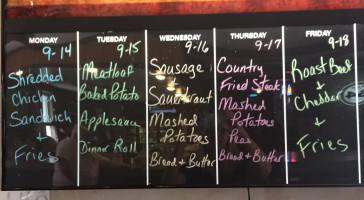 MONDAY
9-14
Shredded
Chicken
Sandwich
+
Fries
TUESDAY
9-15
Meatloaf
Baked Potato
Applesauce
Dinner Roll
WEDNESDAY
9-16
Sausage
Sauerkraut
Mashed
Potatoes
Bread + Butter
THURSDAY
9-17
Country
Fried Steak
Mashed
Potatoes
Peas
Bread + Butter
FRIDAY
9-18
Roast Beef
+
Cheddar
+
Fries